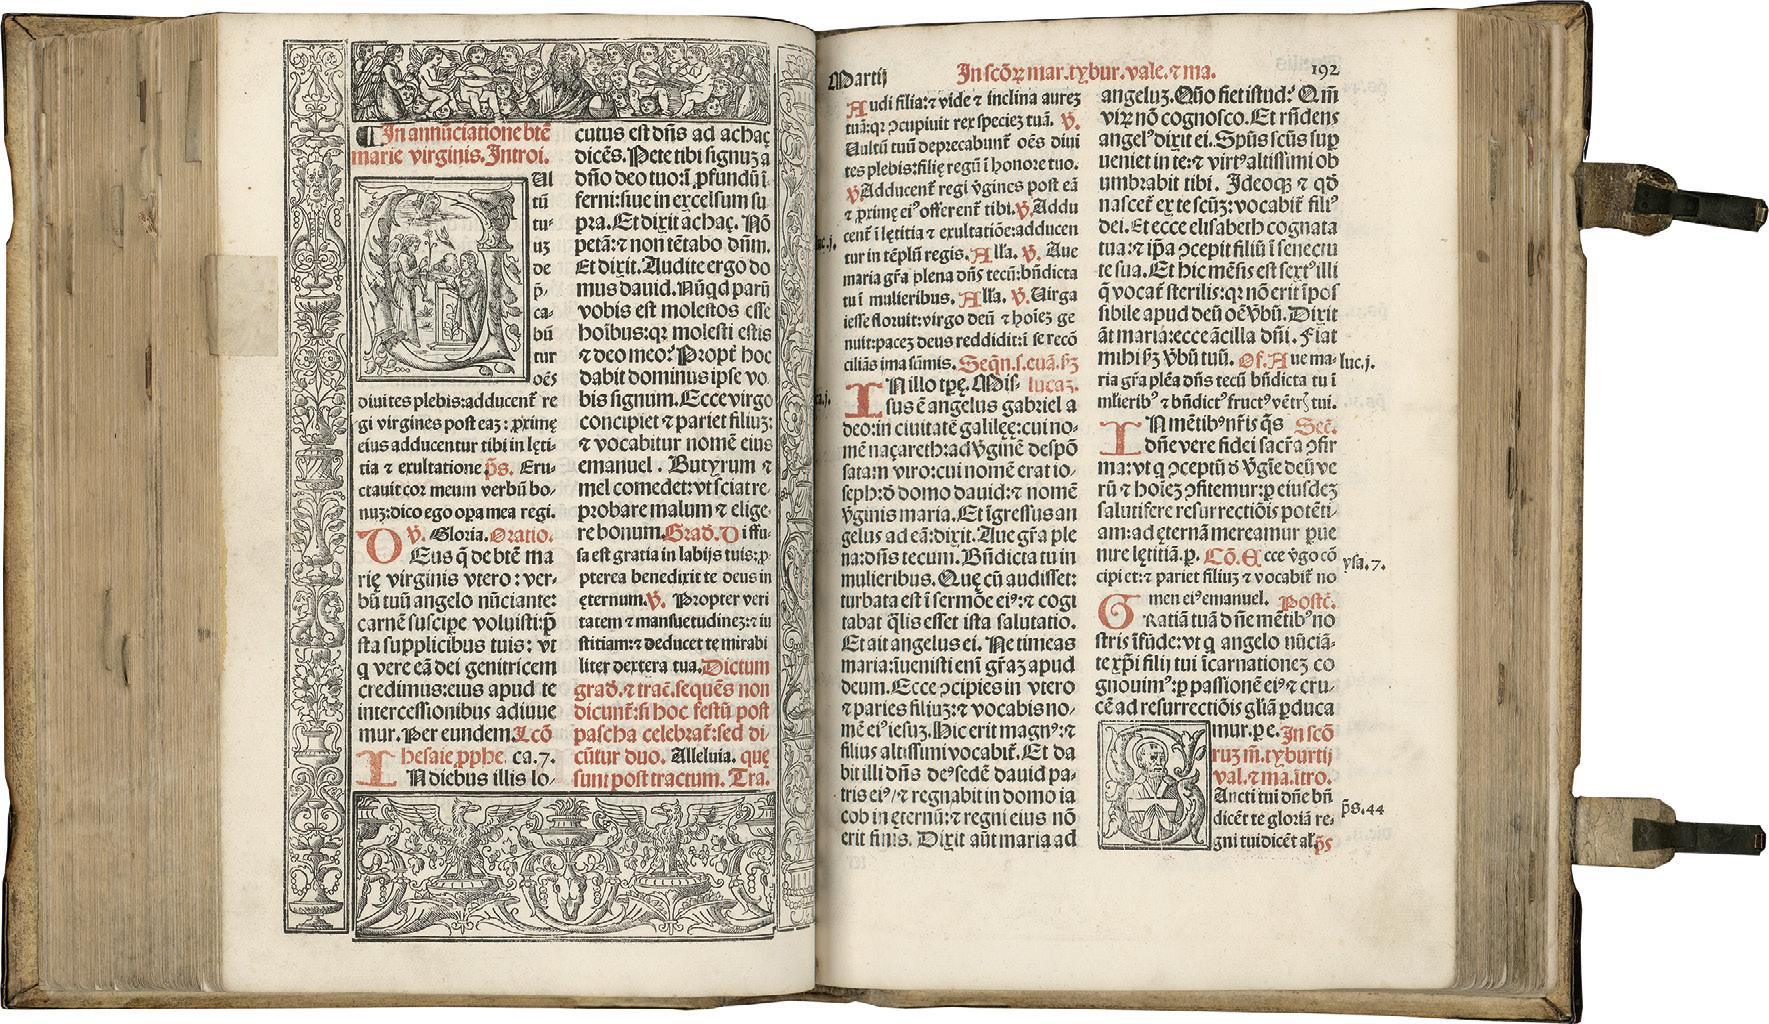 ¶In annūciatione btē
marie virginis. Introi.
Ul
tū
tu-
uꝫ
de
p̄-
ca-
bū
tur
oēs
diuites plebis:adducent̄ re
gi virgines post eaꝫ: ꝓximę
eius adducentur tibi in lęti-
tia ⁊ exultatione p̄s. Eru-
ctauit cor meum verbū bo-
nuꝫ:dico ego oꝑa mea regi.
℣. Gloria. Oratio.
DEus q̄ de btē ma
rię virginis vtero : ver-
bū tuū angelo nūciante:
carnē suscipe voluisti:p̄
sta supplicibus tuis: vt
q vere eā dei genitricem
credimus:eius apud te
intercessionibus adiuue
mur. Per eundem. Lcō
hesaie ꝓphe. ca. 7.
IN diebus illis lo-
cutus est dn̄s ad achaç
dicēs. Pete tibi signuꝫ a
dn̄o deo tuo:ī ꝓfundū ī-
ferni:siue in excelsum su
pra. Et dixit achaç. Nō
petā:⁊ non tētabo dn̄m.
Et dixit. Audite ergo do
mus dauid. Nūqd parū
vobis est molestos esse
hoībus:qꝛ molesti estis
⁊ deo meo? Propt̄ hoc
dabit dominus ipse vo
bis signum. Ecce virgo
concipiet ⁊ pariet filiuꝫ:
⁊ vocabitur nomē eius
emanuel. Butyrum ⁊
mel comedet:vt sciat re-
probare malum ⁊ elige-
re bonum. Grad. Diffu-
sa est gratia in labijs tuis:ꝓ-
pterea benedixit te deus in
ęternum. ℣. Propter veri
tatem ⁊ mansuetudineꝫ:⁊ iu
stitiam:⁊ deducet te mirabi
liter dextera tua. Dictum
grad. ⁊ trac̄. sequēs non
dicunt̄:si hoc festū post
pascha celebrat̄:sed di-
cūtur duo. Alleluia. quę
sunt post tractum. Tra.
Martij In scōꝝ mar. tybur. vale. ⁊ ma. 192
Audi filia:⁊ vide ⁊ inclina aureꝫ
tuā:qꝛ ꝯcupiuit rex specieꝫ tuā. ℣.
Uultū tuū deprecabunt̄ oēs diui
tes plebis:filię regū ī honore tuo.
℣. Adducent̄ regi v̄gines post eā
⁊ ꝓximę eiꝰ offerent̄ tibi. ℣. Addu
cent̄ ī lętitia ⁊ exultatiōe:adducen
tur in tēplū regis. Alla. ℣. Aue
maria gr̄a plena dn̄s tecū:bn̄dicta
tu ī mulieribus. Alla. ℣. Uirga
iesse floruit:virgo deū ⁊ hoīeꝫ ge
nuit:paceꝫ deus reddidit:ī se recō
ciliās ima sūmis. Seqn̄. s. euā. sꝫ
IN illo tp̄e. Mis- lucaꝫ.
sus ē angelus gabriel a
deo:in ciuitatē galilęę:cui no-
mē naçareth:ad v̄ginē despō
satam viro:cui nomē erat io-
seph:d̄ domo dauid:⁊ nomē
v̄ginis maria. Et īgressus an
gelus ad eā:dixit. Aue gr̄a ple
na:dn̄s tecum. Bn̄dicta tu in
mulieribus. Quę cū audisset:
turbata est ī sermōe eiꝰ:⁊ cogi
tabat q̄lis esset ista salutatio.
Et ait angelus ei. Ne timeas
maria:īuenisti enī gr̄aꝫ apud
deum. Ecce ꝯcipies in vtero
⁊ paries filiuꝫ:⁊ vocabis no-
mē eiꝰ iesuꝫ. Hic erit magnꝰ:⁊
filius altissimi vocabit̄. Et da
bit illi dn̄s deꝰ sedē dauid pa-
tris eiꝰ/⁊ regnabit in domo ia
cob in ęternū:⁊ regni eius nō
erit finis. Dixit aūt maria ad
angeluꝫ. Quō fiet istud? Qm̄
viꝝ nō cognosco. Et rn̄dens
angelꝰ dixit ei. Sp̄us scūs suꝑ
ueniet in te:⁊ virtꝰ altissimi ob
umbrabit tibi. Ideoqꝫ ⁊ qd̄
nascet̄ ex te scūꝫ:vocabit̄ filiꝰ
dei. Et ecce elisabeth cognata
tua:⁊ ip̄a ꝯcepit filiū ī senectu
te sua. Et hic mēsis est sextꝰ illi
q̄ vocat̄ sterilis:qꝛ nō erit īpos
sibile apud deū oē v̄bū. Dixit
āt maria:ecce ācilla dn̄i. Fiat
mihi sꝫ v̄bū tuū. Of. Aue ma- luc. j.
ria gr̄a plēa dn̄s tecū bn̄dicta tu ī
mlieribꝰ ⁊ bn̄dictꝰ fructꝰ vētrꝭ tui.
IN mētibꝰ nr̄is q̄s Sec̄.
dn̄e vere fidei sacr̄a ꝯfir
ma:vt q ꝯceptū d̄ v̄gīe deū ve
rū ⁊ hoīeꝫ ꝯfitemur:ꝑ eiusdeꝫ
salutifere resurrectiōis potēti-
am:ad ęternā mereamur ꝑue
nire lętitiā. ꝑ. Cō. Ecce v̄go cō ysa. 7.
cipiet:⁊ pariet filiuꝫ ⁊ vocabit̄ no
men eiꝰ emanuel. Postc̄.
GRatiā tuā dn̄e mētibꝰ no
stris īfūde:vt q angelo nūciā-
te xp̄i filij tui īcarnationeꝫ co
gnouimꝰ:ꝑ passionē eiꝰ ⁊ cru-
cē ad resurrectiōis gl̄iā ꝑduca
mur. ꝑ e. In scō
ruꝫ m̄. tyburtij
val. ⁊ ma. ītro.
Sancti tui dn̄e bn̄
dicēt te gloriā re- p̄s. 44
gni tui dicēt al. p̄s